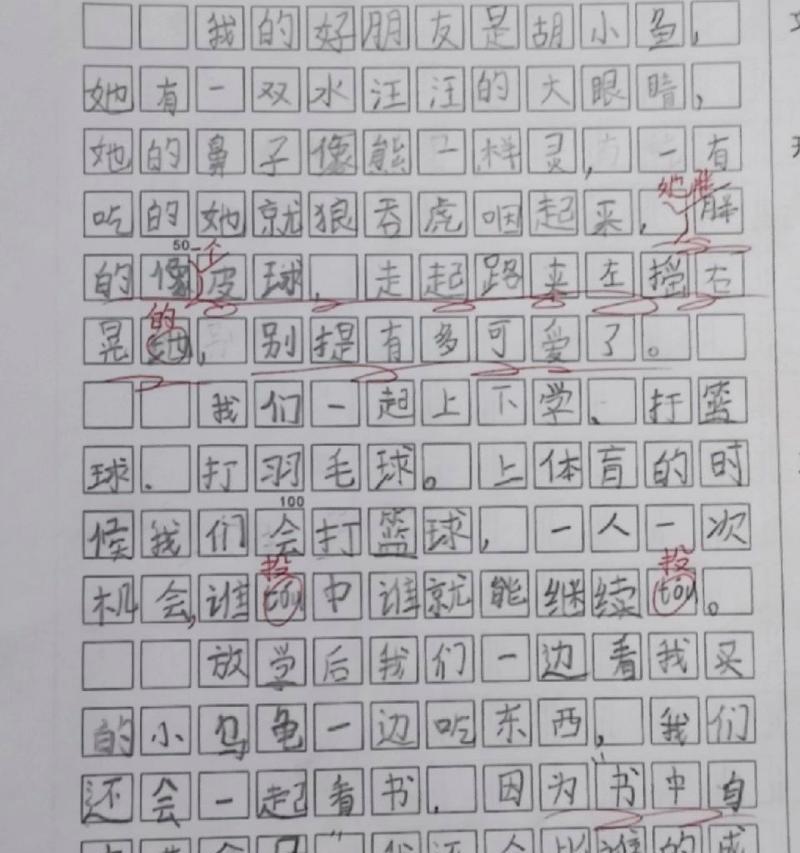 我的好朋友是胡小鱼,
她有一双水汪汪的大眼睛,
她的鼻子像能一样灵,一有
吃的她就狼吞虎咽起来,她胖
50 一个
的像皮球,走起路来左摇右
的
晃她,别提有多可爱了。
我们一起上下学、打篮
球.打羽毛球。上体育的时
100
候我们会打篮球,一人一次
投 投
机会,谁tóu中谁就能继续tóu。
放学后我们一边看我买
的小乌龟一边吃东西,我们
还会一起看书.因为"书中自